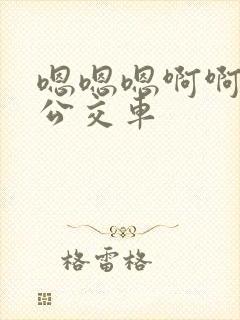 嗯嗯嗯啊啊
公交车
格雷格